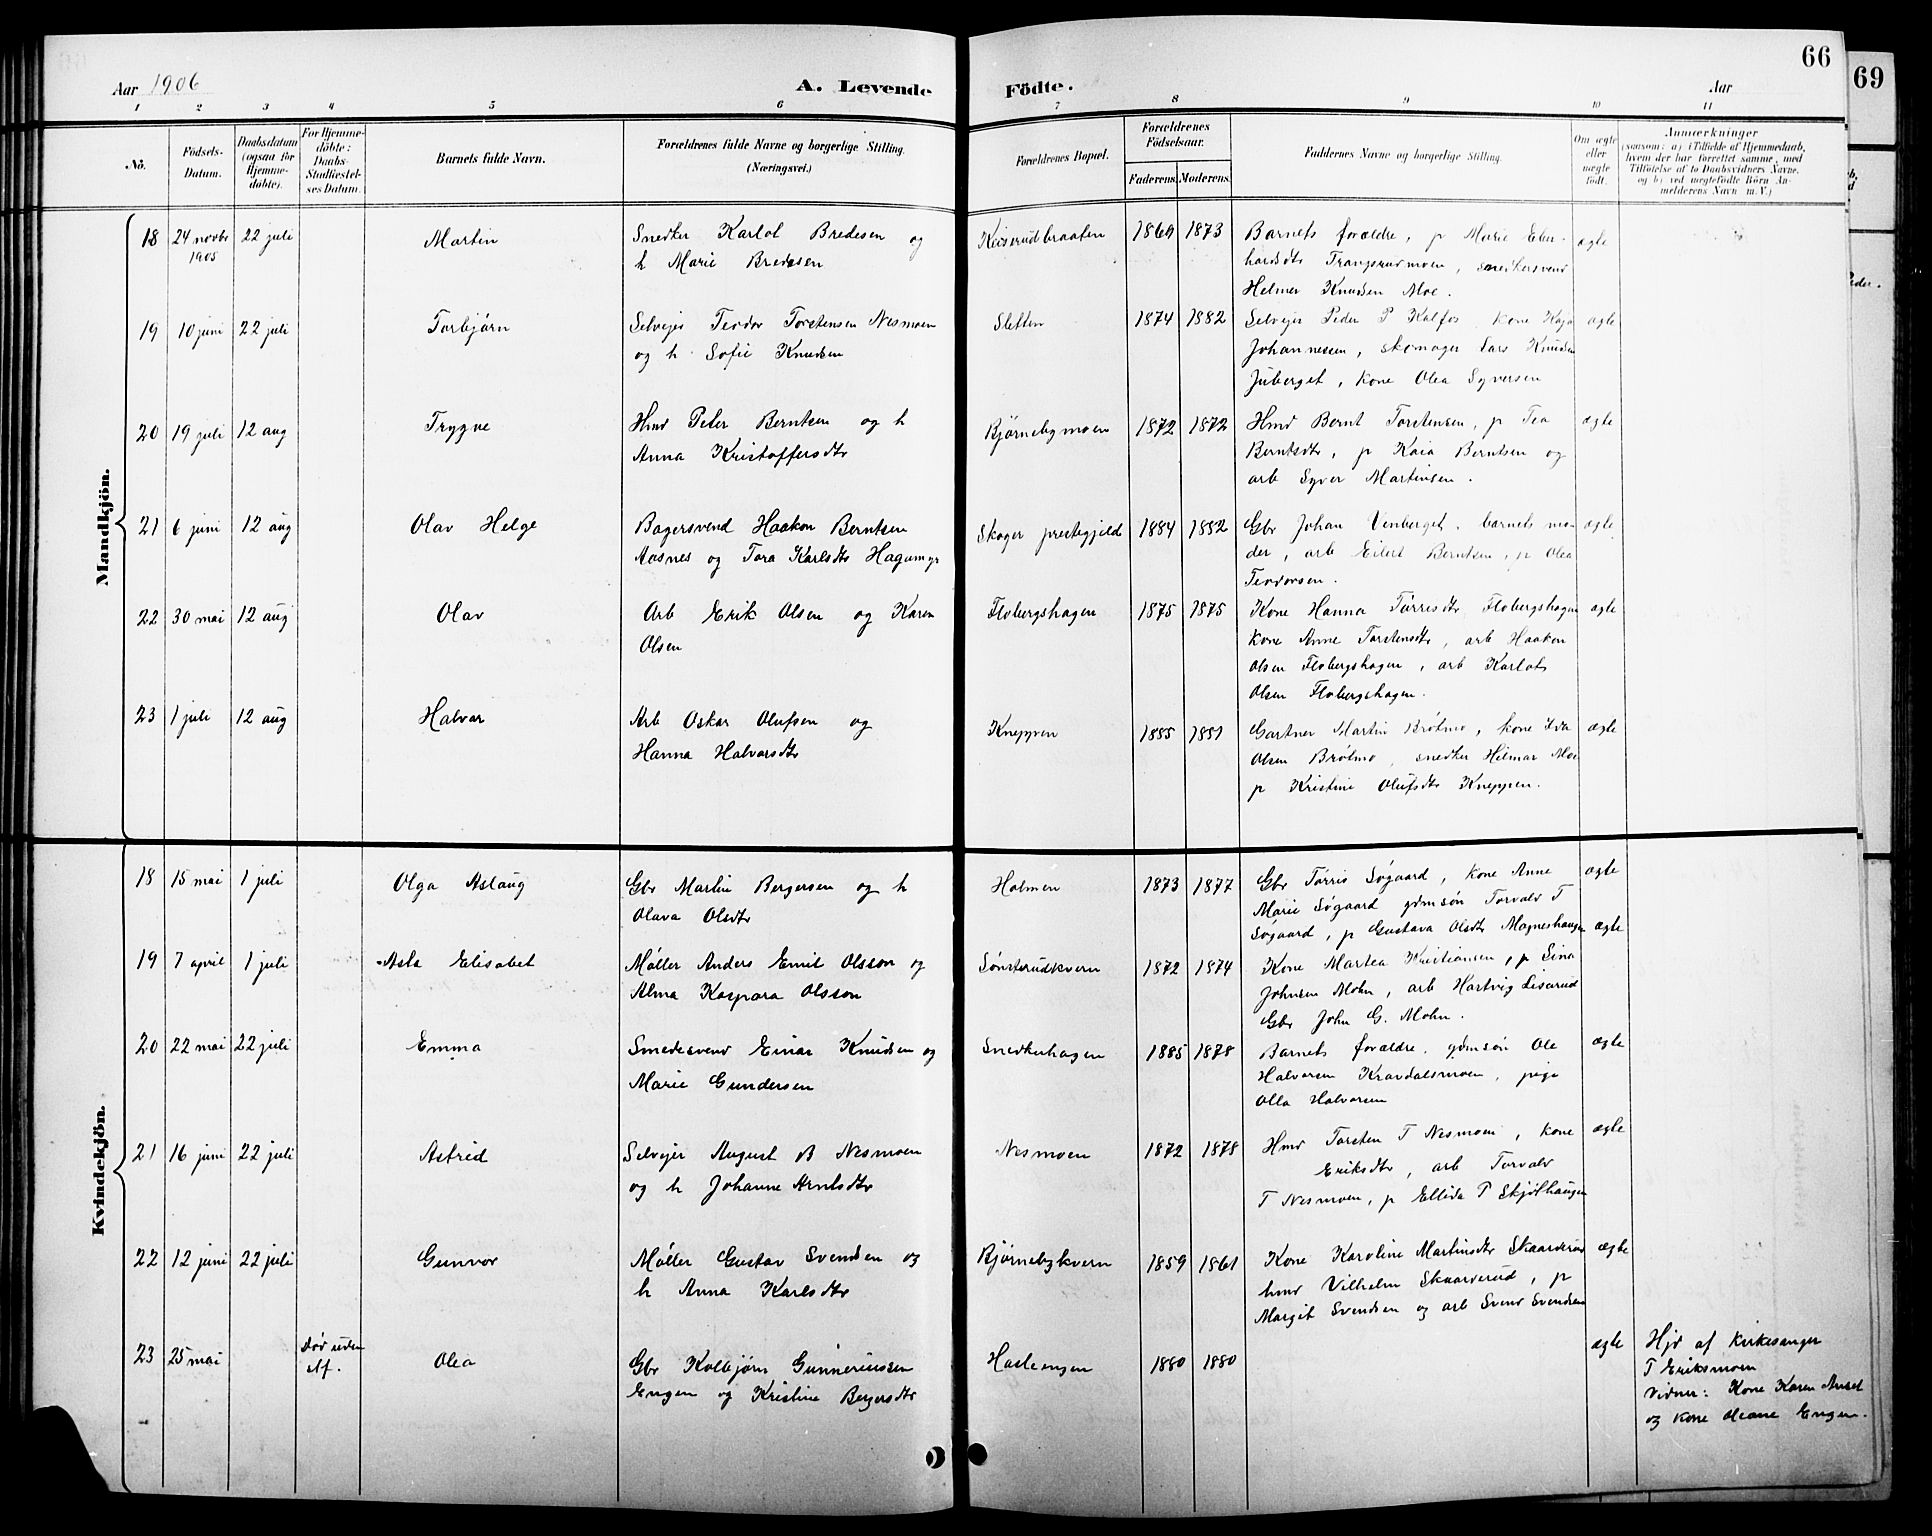 66
69
Aar 1906
A. Levende
Födte.
Aar
1 2 3 4 5 6 7 8 9 10 11
Nö.
Födsels-
Datum.
Daabsdatum
(ogsaa for
Hjemme-
døbte).
For Hjemme-
döbte:
Daabs-
Stadfæstel-
ses Datum.
Barnets fulde Navn.
Forældrenes fulde Navne og borgerlige Stilling.
(Næringsvei.)
Forældrenes Bopæl.
Forældrenes
Födselsaar.
Faderens. Moderens.
Faddernes Navne og borgerlige Stilling.
Om ægte
eller
uægte
födt.
Anmærkninger
(saasom: a) i Tilfælde af Hjemmedaab,
hvem der har forrettet samme, med
Tilföielse af to Daabsvidners Navne,
og b) ved uægtefödte Börn An-
melderens Navn m. V.)
Mandkjön.
18 24 novbr 22 juli Martin Snedker Karlot Bredesen og 1869 1873 Barnets forældre, p Marie Eber- ægte
1905 h Marie Bredesen hardsdtr Tranprudmoen, snedkersvend
Helmer Knudsen Moe.
19 10 juni 22 juli Torbjørn Selvejer Teodor Torstensen Nesmoen Sletten 1874 1882 Selvejer Peder P Kalfos, kone Kaja ægte
og h Sofie Knudsen Johannessen, skomager Lars Knudsen
Juberget, kone Olea Syversen
20 19 juli 12 aug Trygve Hmd Peter Berntsen og h Bjørnebymoen 1872 1872 Hmd Bernt Torstensen, p Tea ægte
Anna Kristoffersdtr Berntsdtr, p Kaia Berntsen og
arb Syver Martinsen.
21 6 juni 12 aug Olav Helge Bagersvend Haakon Berntsen Skoger prestegjeld 1884 1882 Gbr Johan Vinberget, barnets mo- ægte
Aasnes og Tora Karlsdtr Hagamyr der, arb Eilert Berntsen, p Olea
Teodorsen.
22 30 mai 12 aug Olav Arb Erik Olsen og Karen Flobergshagen 1875 1875 Kone Hanna Tørresdtr Flobergshagen ægte
Olsen kone Anne Torstensdtr, arb Haakon
Olsen Flobergshagen, arb Karlot
Olsen Flobergshagen.
23 1 juli 12 aug Halvar Arb Oskar Olufsen og Kneppen 1885 Gartner Martin Brøtmo, kone Ida ægte
Hanna Halvarsdtr Olsen Brøtmo, snedker Hilmar Moe
p Kristine Olufsdtr Kneppen.
Kvindekjön.
18 15 mai 1 juli Olga Aslaug Gbr Martin Bergersen og h Holmen 1873 1877 Gbr Tørris Søgaard, kone Anne ægte
Olava Olsdtr Marie Søgaard gdmsøn Torvald T
Søgaard, p Gustava Olsdtr Magneshaugen ægte
19 7 april 1 juli Asta Elisabet Møller Anders Emil Olsson og Sønsterudkvern 1872 1874 Kone Martea Kristiansen, p Lina
Alma Kaspara Olsson Johnsen Mohn, arb Hartvig Liserud
Gbr John G. Mohn.
20 22 mai 22 juli Emma Smedesvend Einar Knudsen og Snedkerhagen 1885 1878 Barnets forældre, gdmsøn Ole ægte
Marie Gundersen Halvorsen Kravdalsmoen, pige
Olla Halvorsen
21 16 juni 22 juli Astrid Selvejer August B Nesmoen Nesmoen 1872 1878 Hmd Torsten T Nesmoen, kone ægte
og h Johanne Arntsdtr Eriksdtr, arb Torvald
T Nesmoen, p Ellida P Skjølhaugen
22 12 juni 22 juli Gunvor Møller Gustav Svendsen og Bjørnebykvern 1859 1861 Kone Karoline Martinsdtr Skaarderud ægte
h Anna Karlsdtr hmd Vilhelm Skaarderud, p
Margit Svendsen og arb Svend Svendsen
23 25 mai død uden Olea Gbr Kolbjørn Gunneriussen Hasleengen 1880 1880 ægte Hjd af kirkesanger
stf. Engen og Kristine Bergersdtr T Eriksmoen
Vidner: Kone Karen
og kone Oleane Engen.